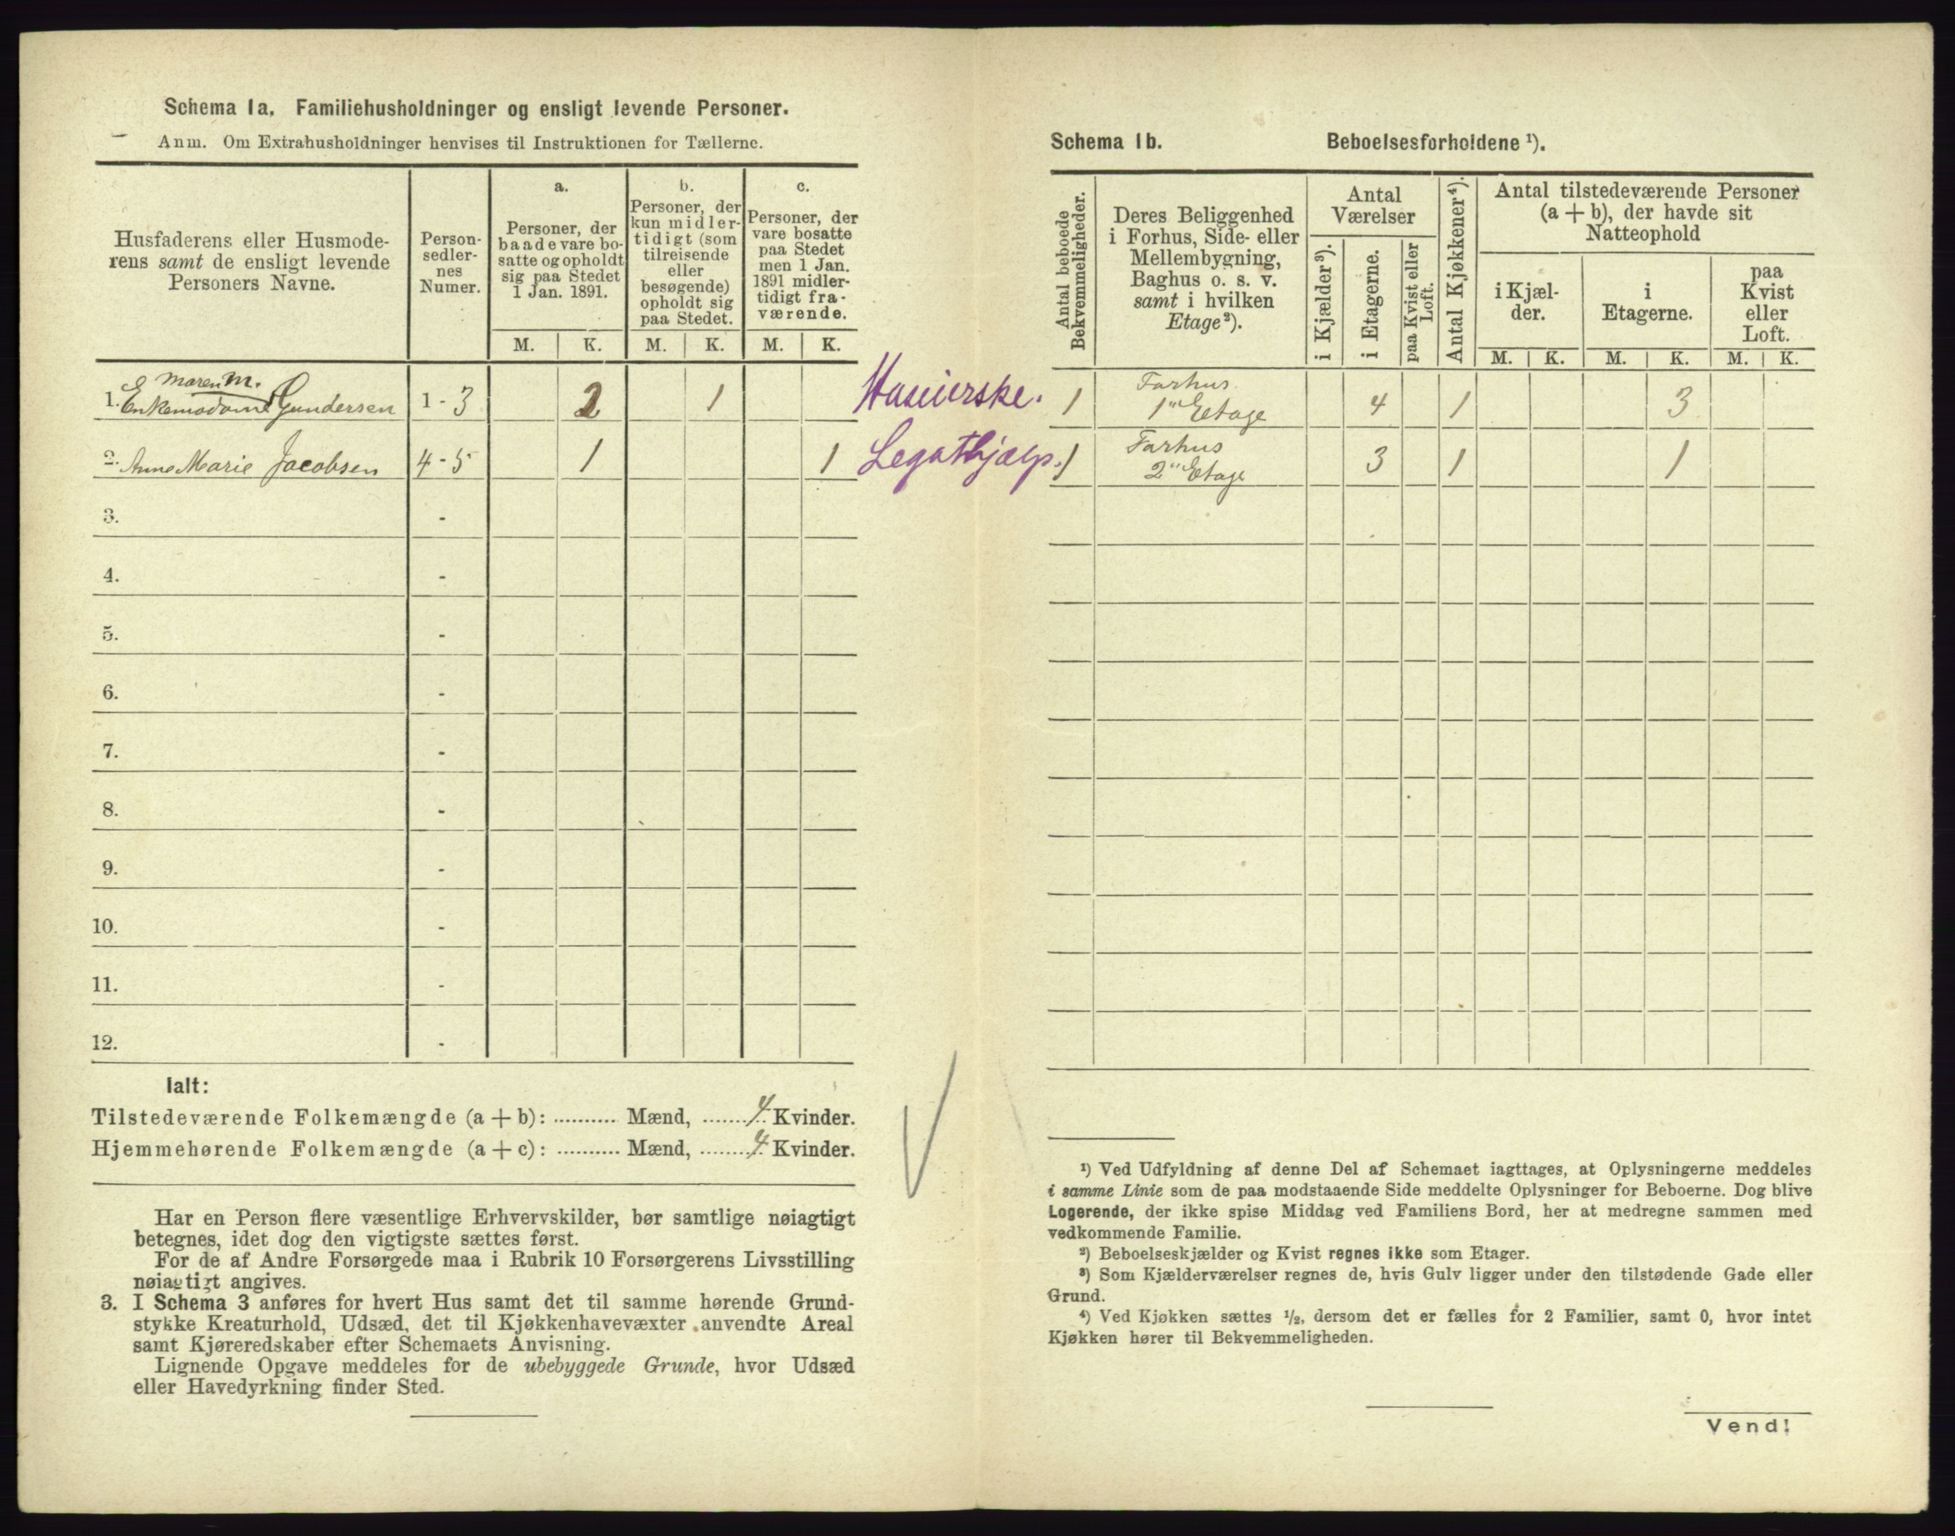 Schema 1a. Familiehusholdninger og ensligt levende Personer.
Anm. Om Extrahusholdninger henvises til Instruktionen for Tællerne.
Husfaderens eller Husmode-
rens samt de ensligt levende
Personers Navne.
Person-
sedler-
nes
Numer.
a.
Personer, der
baade vare bo-
satte og opholdt
sig paa Stedet
1 Jan. 1891.
b.
Personer, der
kun midler-
tidigt (som
tilreisende
eller
besøgende)
opholdt sig
paa Stedet.
c.
Personer, der
vare bosatte
paa Stedet
men 1 Jan.
1891 midler-
tidigt fra-
værende.
M. K. M. K. M. K.
Maren M.
1. Enkemadame Gundersen 1 - 3 2 1
2. Anne Marie Jacobsen 4 - 5 1 1
3. -
4. -
5. -
6. -
7. -
8. -
9. -
10. -
11. -
12. -
Ialt:
Tilstedeværende Folkemængde (a + b): .......... Mænd, .......4.. Kvinder.
Hjemmehørende Folkemængde (a + c): .......... Mænd, .......4.. Kvinder.
Har en Person flere væsentlige Erhvervskilder, bør samtlige nøiagtigt
betegnes, idet dog den vigtigste sættes først.
For de af Andre Forsørgede maa i Rubrik 10 Forsørgerens Livsstilling
nøiagtigt angives.
3. I Schema 3 anføres for hvert Hus samt det til samme hørende Grund-
stykke Kreaturhold, Udsæd, det til Kjøkkenhavevæxter anvendte Areal
samt Kjøreredskaber efter Schemaets Anvisning.
Lignende Opgave meddeles for de ubebyggede Grunde, hvor Udsæd
eller Havedyrkning finder Sted.
Schema 1b. Beboelsesforholdene ¹).
Antal beboede
Bekvemmeligheder.
Deres Beliggenhed
i Forhus, Side- eller
Mellembygning,
Baghus o. s. v.
samt i hvilken
Etage²).
Antal
Værelser
i Kjælder³).
i Etagerne.
paa Kvist eller
Loft.
Antal Kjøkkener⁴).
Antal tilstedeværende Personer
(a + b), der havde sit
Natteophold
i Kjæl-
der.
i
Etagerne.
paa
Kvist
eller
Loft.
M. K. M. K. M. K.
Høkerske. 1 Forhus
1ste Etage 4 1 3
Legathjælp. 1 Forhus
2" Etage 3 1 1
¹) Ved Udfyldning af denne Del af Schemaet iagttages, at Oplysningerne meddeles
i samme Linie som de paa modstaaende Side meddelte Oplysninger for Beboerne. Dog blive
Logerende, der ikke spise Middag ved Familiens Bord, her at medregne sammen med
vedkommende Familie.
²) Beboelseskjælder og Kvist regnes ikke som Etager.
³) Som Kjælderværelser regnes de, hvis Gulv ligger under den tilstødende Gade eller
Grund.
⁴) Ved Kjøkken sættes ½, dersom det er fælles for 2 Familier, samt 0, hvor intet
Kjøkken hører til Bekvemmeligheden.
Vend!